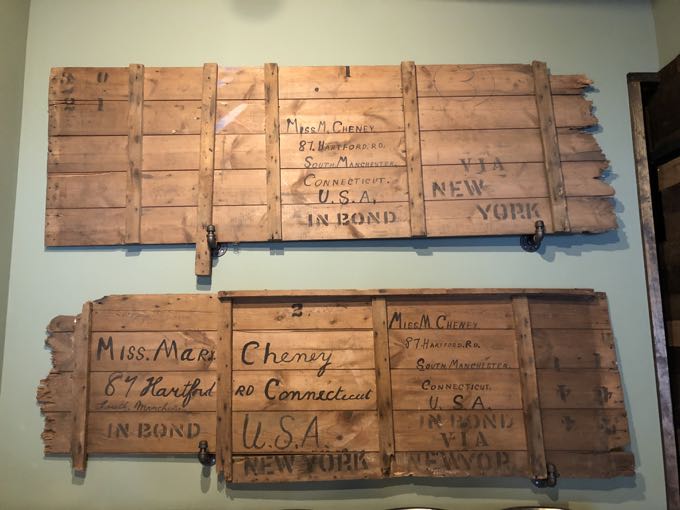 1
Miss M. Cheney
87. Hartford. Rd.
South Manchester.
Connecticut.
U.S.A.
IN BOND
VIA
NEW
YORK
2
Miss. Mary Cheney
87 Hartford RD Connecticut
South Manchester
U.S.A.
IN BOND
NEW YORK
Miss M Cheney
87. Hartford. Rd.
South Manchester.
Connecticut.
U.S.A.
IN BOND
VIA
NEW YOR